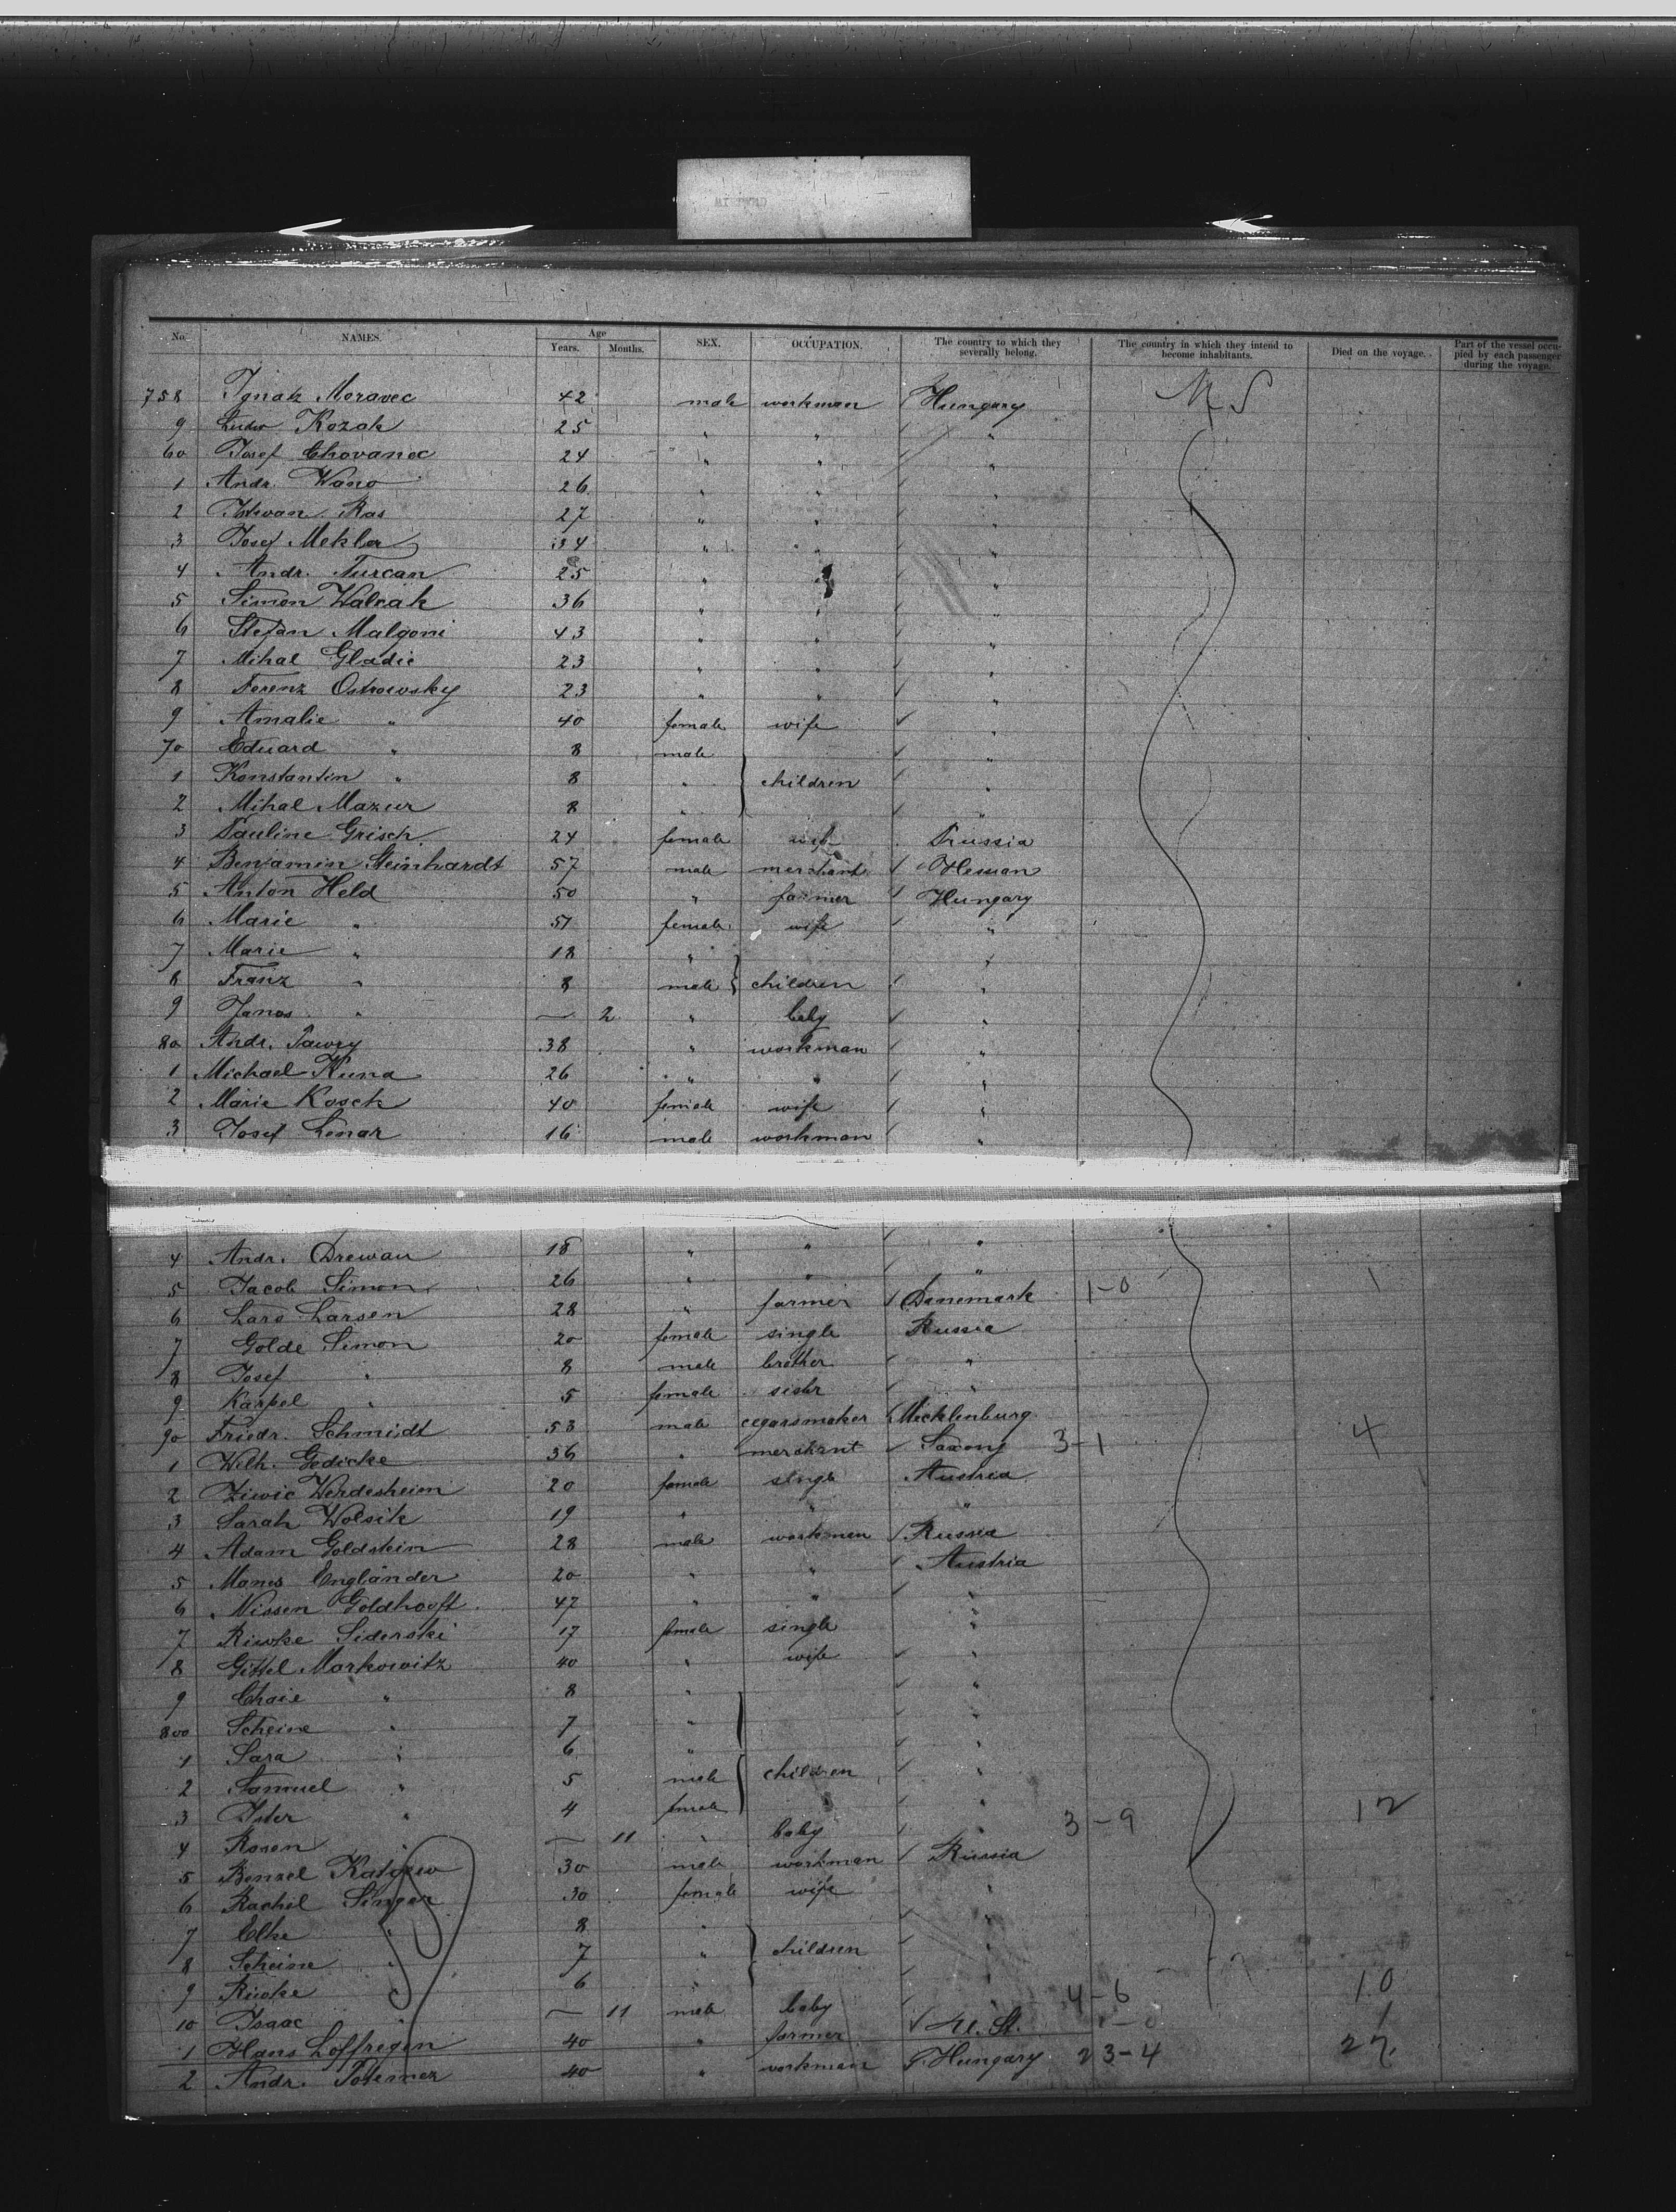 No. NAMES. Age Years. Months. SEX. OCCUPATION. The country to which they severally belong. The country in which they intend to become inhabitants. Died on the voyage. Part of the vessel occupied by each passenger during the voyage.
758 Ignatz Moravec 42 male workman Hungary
9 Ludw Kozak 25 " " "
60 Josef Chovanec 24 " " "
1 Andr. Wano 26 " " "
2 Istwan Ras 27 " " "
3 Josef Mekler 34 " " "
4 Andr. Turcan 25 " " "
5 Simon Walcak 36 " " "
6 Stefan Malgoni 43 " " "
7 Mihal Gladic 23 " " "
8 Ferenz Ostrowsky 23 " " "
9 Amalie " 40 female wife "
70 Eduard " 8 male "
1 Konstantin " 8 " children "
2 Mihal Mazur 8 " "
3 Pauline Grisch 24 female wife Prussia
4 Benjamin Steinhardt 57 male merchant
5 Anton Held 50 " farmer Hungary
6 Marie " 51 female wife "
7 Marie " 18 " "
8 Franz " 8 male children "
9 Janos " — 2 " baby "
80 Andr. Pawry 38 " workman "
1 Michael Kuna 26 " " "
2 Marie Kosch 40 female wife "
3 Josef Lenar 16 male workman "
4 Andr. Drewau 18 " " "
5 Jacob Simon 26 " " "
6 Lars Larsen 28 " farmer Danemark 1-0 1
7 Golde Simon 20 female single Russia
8 Josef " 8 male brother "
9 Karpel " 5 female sistr "
90 Friedr. Schmidt 53 male cegarsmaker Mecklenburg
1 Wilh. Gedicke 36 " merchant Saxony 3-1 4
2 Ziwie Werdesheim 20 female single Austria
3 Sarah Wolsik 19 " " "
4 Adam Goldstein 28 male workmen Russia
5 Manes Engländer 20 " " Austria
6 Nissen Goldhooft 47 " " "
7 Riwke Siderski 17 female single "
8 Gittel Markowitz 40 " wife "
9 Chaie " 8 " "
800 Scheine " 7 " "
1 Sara " 6 " "
2 Samuel " 5 male children "
3 Ister " 4 female "
4 Rosen " — 11 " baby " 3-9 12
5 Benzel Katgew 30 male workman Russia
6 Rachel Singer 30 female wife "
7 Elke " 8 " "
8 Scheine " 7 " children "
9 Riwke " 6 " "
10 Isaac " — 11 male baby 4-6 10
1 Hans Loffregen 40 " farmer U. St. 1
2 Andr. 40 " workman Hungary 23-4 27